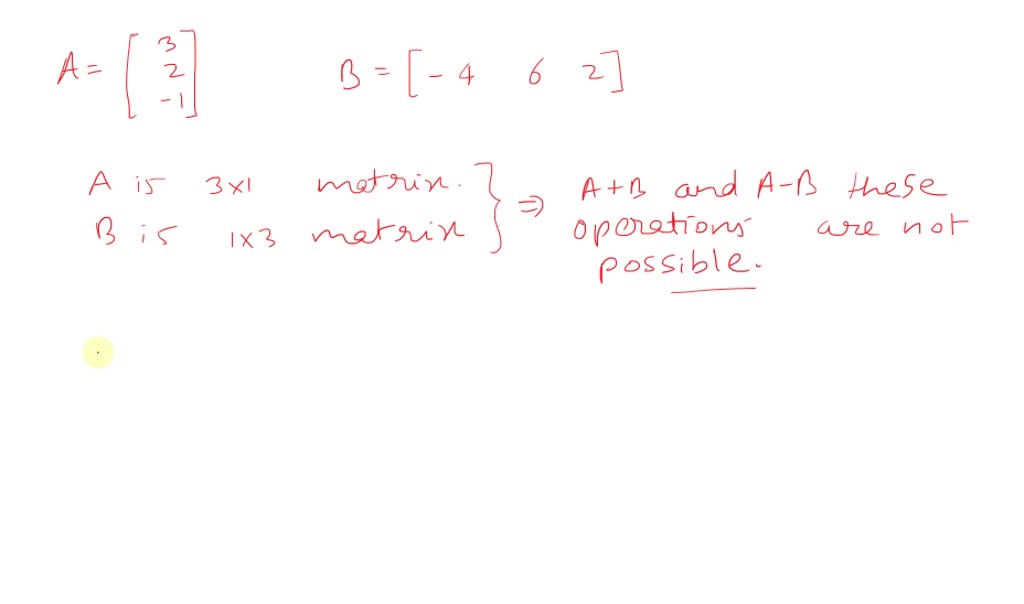 A = [ 3 2 -1 ] B = [ -4 6 2 ]
A is 3x1 matrix.
B is 1x3 matrix
} ⇒ A+B and A-B these
operations are not
possible.